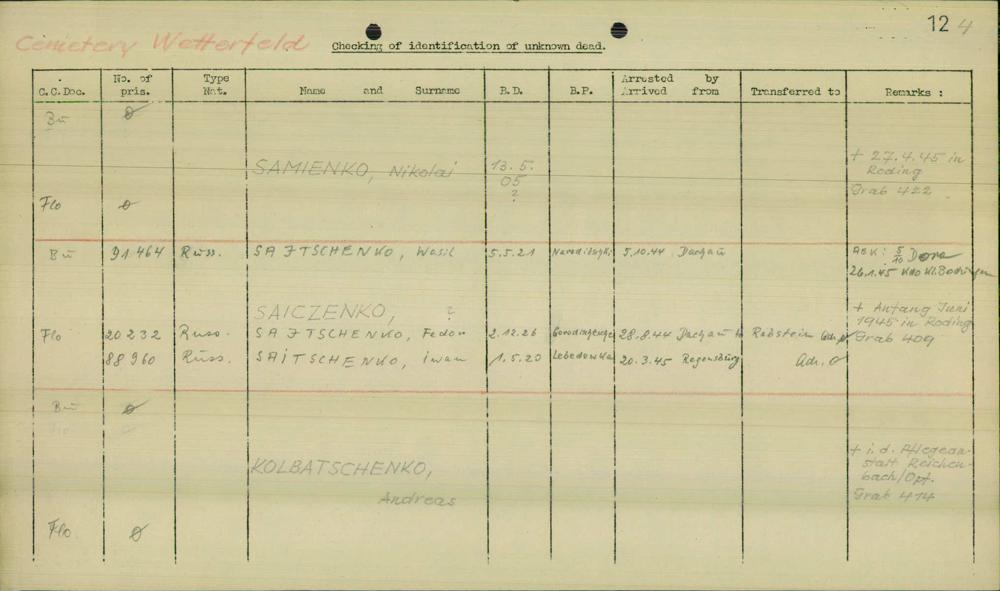 12 4
Cemetery Wetterfeld
Checking of identification of unknown dead.
C.C.Doc. No. of pris. Type Nat. Name and Surname B.D. B.P. Arrested by Arrived from Transferred to Remarks :
Bu Ø
SAMIENKO, Nikolai 13.5. 05 ? + 27.4.45 in
Roding
Grab 422
Flo Ø
Bu 91464 Russ. SAJTSCHENKO, Wasil 5.5.21 5.10.44 Dachau Dora
26.1.45 Kdo
SAICZENKO, ? + Anfang Juni
1945 in Roding
Flo 20232 Russ. SAJTSCHENKO, Fedor 2.12.26 28.8.44 Dachau Rabstein Grab 409
88960 Russ. SAITSCHENKO, iwan 1.5.20 Lebedowka 20.3.45 Regensburg Adr. Ø
Bu Ø
KOLBATSCHENKO,
Andreas
+ i.d. Pflegean-
stalt Reichen-
bach/Opf.
Grab 414
Flo Ø